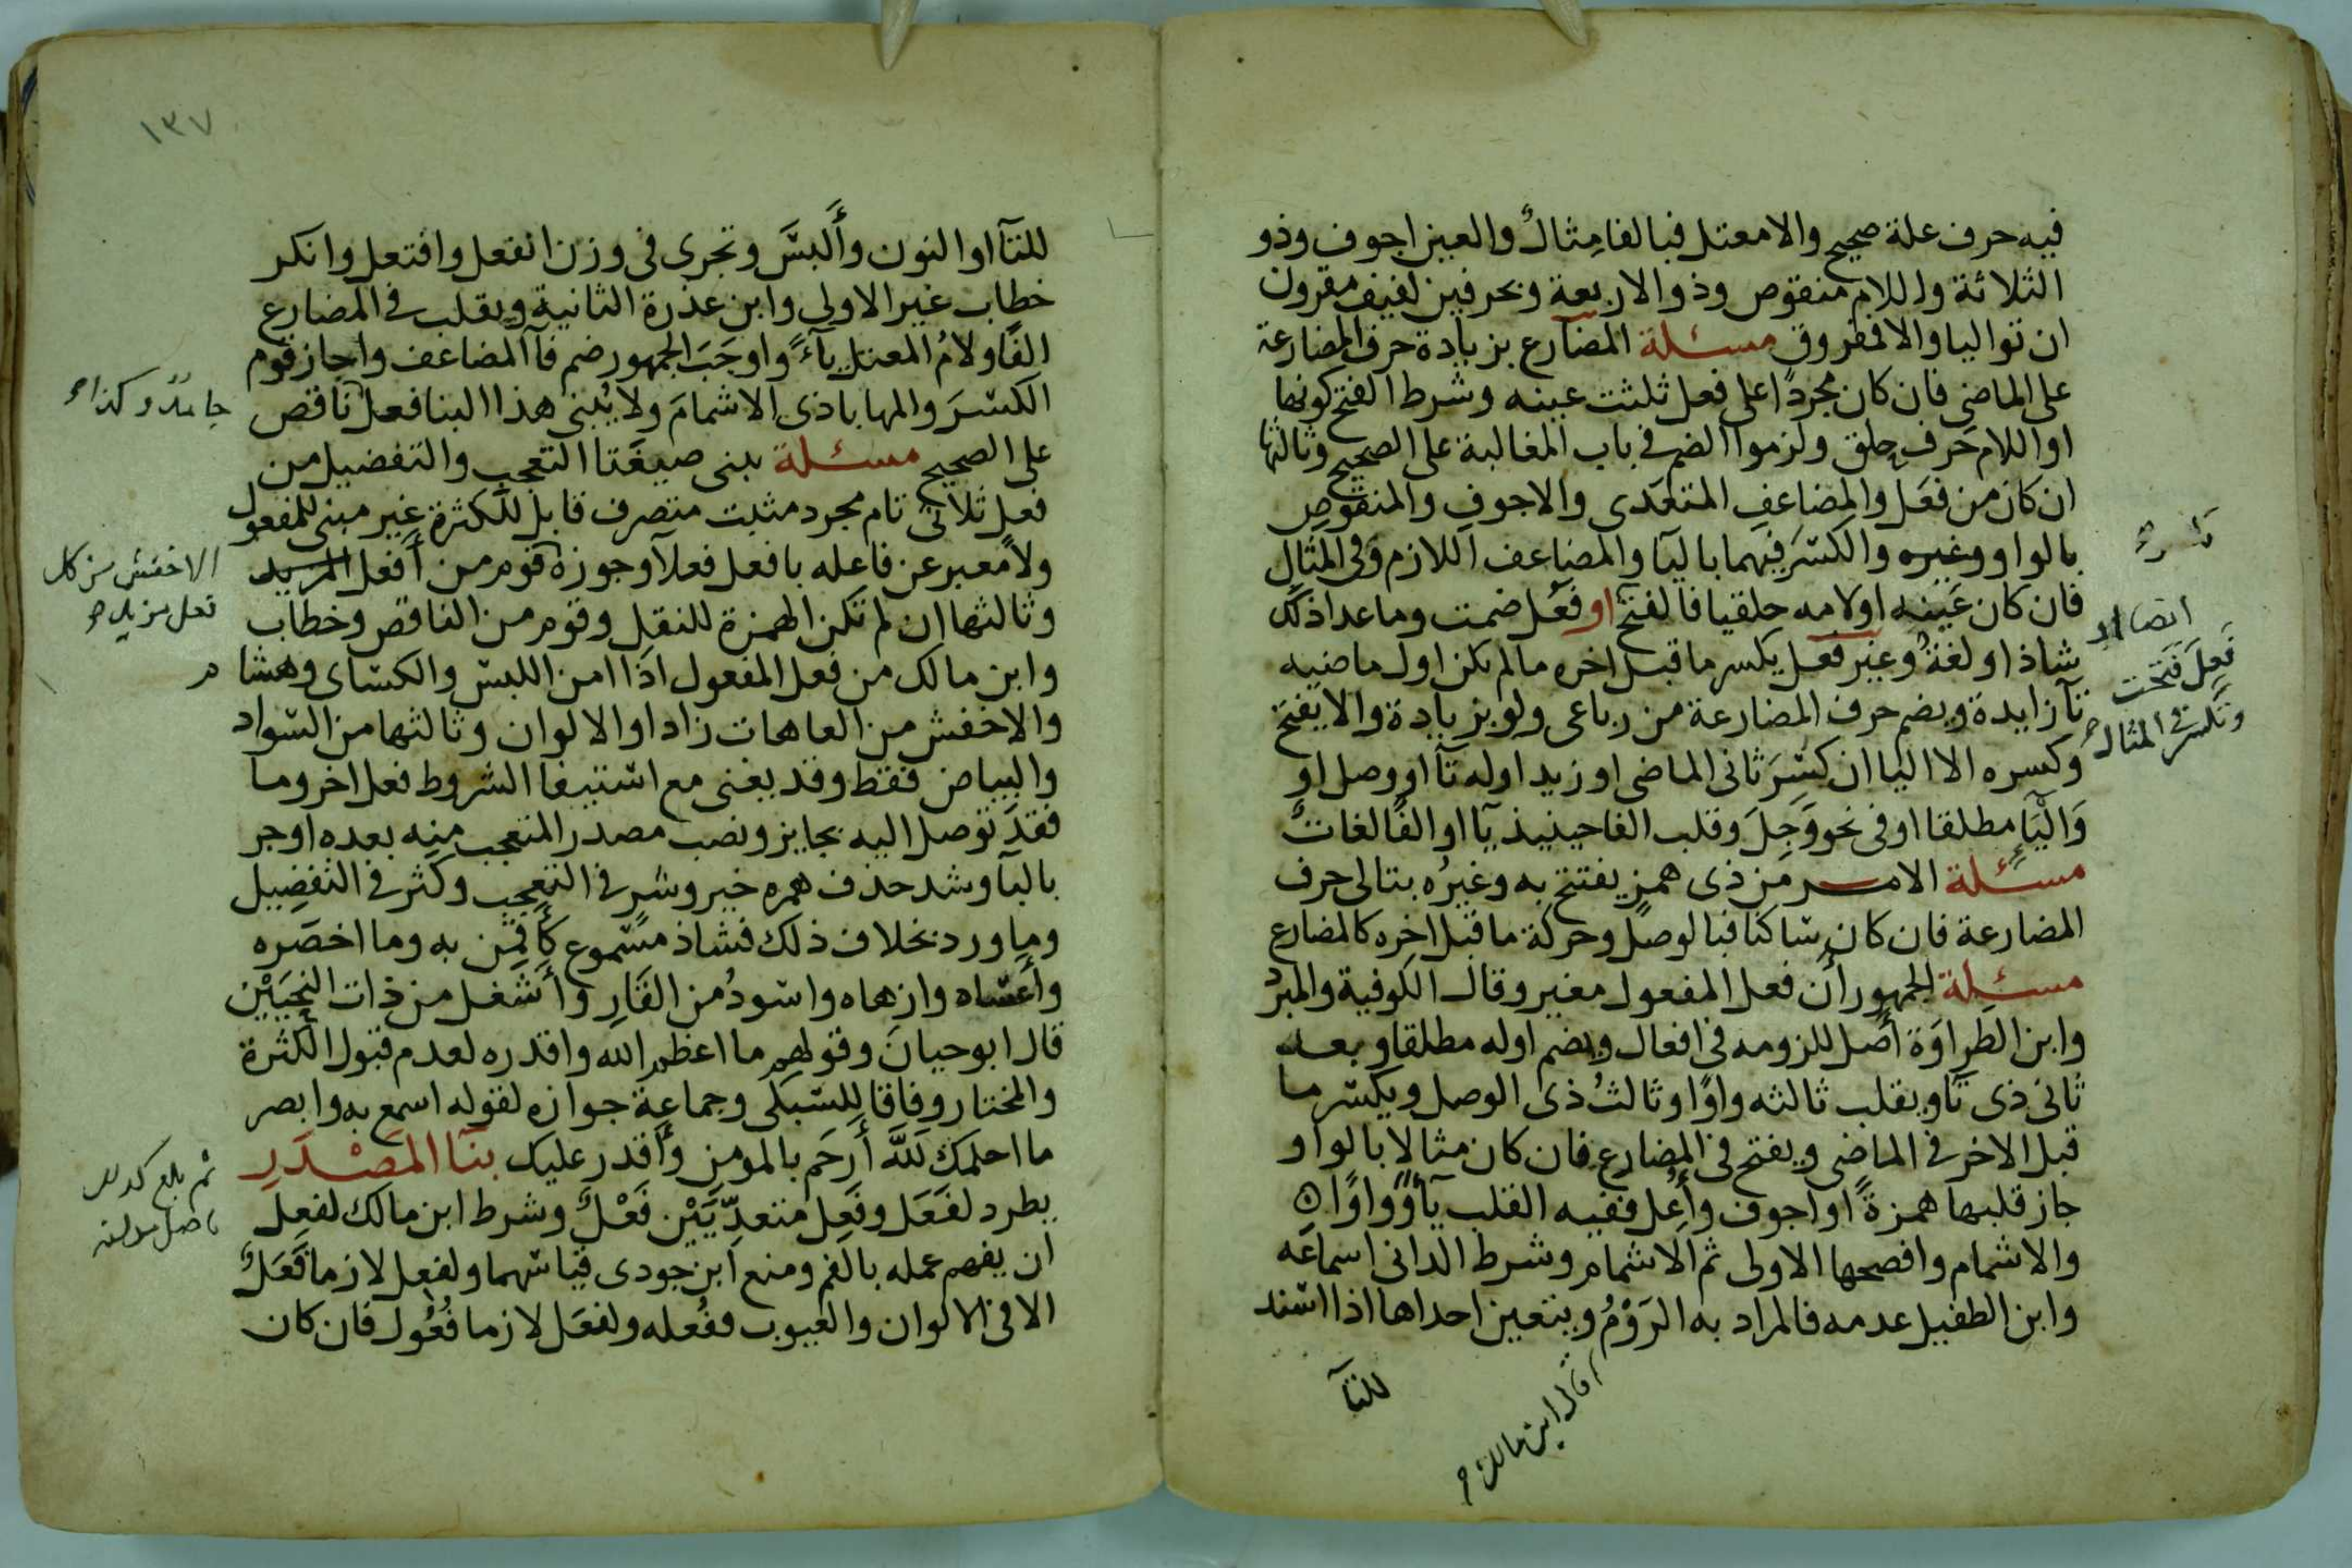 فيه حرف علة صحيح والا معتل فبالفا مثالٌ والعين اجوف وذو
الثلاثة واللام منقوص وذو الاربعة وبحرفين لفيف مقرون
ان تواليا والا مفروق مسئلة المضارع بزيادة حرف المضارعة
على الماضى فان كان مجردا على فعل ثلثت عينه وشرط الفتح كونها
او اللام حرف حلق ولزموا الضم فى باب المغالبة على الصحيح وثالثها
ان كان من فعَل والمضاعفِ المتعدى والاجوفِ والمنقوصِ
بالواو وغيره والكسَر فيهما باليا والمضاعف اللازم وفى المثال
فان كان عينه او لامه حلقيا فالفتح او فعُل ضمت وما عدا ذلك
شاذ او لغةٌ وغير فعل يكسر ما قبل اخره ما لم يكن اول ماضيه
تآ زايدة ويضم حرف المضارعة من رباعى ولو بزيادة والا يفتح
وكسره الا اليا ان كسِرَ ثانى الماضى او زيد اوله تآ او وصل او
وَالْيَآ مطلقا او فى نحو وَجِلَ وقلب الفا حينيذ يآ او الفًا لغات
مسئلة الامر من ذى همز يفتتح به وغيرُه بتالى حرف
المضارعة فان كان ساكنا فبالوصل وحركة ما قبل اخره كالمضارع
مسئلة الجمهور أن فعل المفعول مغير وقال الكوفية والمبرد
وابن الطراوَة أصل للزومه فى افعال ويضم اوله مطلقا وبعد
ثانى ذى تا ويقلب ثالثه واوًا وثالثُ ذى الوصل ويكسر ما
قبل الاخر فى الماضى ويفتح فى المضارع فان كان مثالا بالواو
جاز قلبها همزةً او اجوف وأُعِل ففيه القلب يآ وواوًا
والاشمام وافصحها الاولى ثم الاشمام وشرط الدانى اسماعَه
وابن الطفيل عدمه فالمراد به الرَوْمُ ويتعين احداها اذا اسند
للتآ
قال ابن مالك
فَعِلَ فتحت
وتكسر فى المثال
١٣٧
للتآ او النون وأَلبسَ وتجرى فى وزن انفعل وافتعل وانكر
خطاب غير الاولى وابن عذرة الثانية ويقلب فى المضارع
الفًا ولامُ المعتل يآءً واوجَبَ الجمهور ضم فآ المضاعف واجاز قوم
الكسْرَ والمهاباذى الاشمامَ ولا يُبنى هذا البنا فعل ناقص
على الصحيح مسئلة يبنى صيغَتا التعجب والتفضيل من
فعل ثلاثى تام مجرد مثبت متصرف قابل للكثرة غير مبنى للمفعول
ولا معبر عن فاعله بافعل فعلآ وجوزه قوم من أفعل المزيد
وثالثها ان لم تكن الهمزة للنقل وقوم من الناقص وخطاب
وابن مالك من فعل المفعول اذا امن اللبس والكساى وهشام
والاخفش من العاهات زاد او الالوان وثالثها من السواد
والبياض فقط وقد يغنى مع استيفا الشروط فعل اخر وما
فقدَ توصل اليه بجايز ونصب مصدر المتعجب منه بعده او جر
باليآ وشد حذف همزه خير وشر فى التعجب وكَثر فى التفضيل
وما ورد بخلاف ذلك فشاذ مسْموع كأَقمِن به وما اخصَره
وأعساه وازهاه واسودُ من القَارِ وأشغل من ذات النحيَيْن
قال ابو حيان وقولهم ما اعظم الله واقدره لعدم قبول الكثرة
والمختار وفاقا للسْبكى وجماعة جوازه لقوله اسمع به وابصر
ما احلمك للهَّ أَرحَم بالمومن وأَقدر عليك بنآ المَصْدَرِ
يطرد لفَعَل وفَعِل متعدِّيَيْن فَعْلٌ وشرط ابن مالك لفعِل
ان يفهم عمله بالفم ومنع ابن جودى قياسهما ولفعِل لازما فَعَلٌ
الا فى الالوان والعيوب ففُعله ولفعَل لازما فُعُول فان كان
جامد وكذا